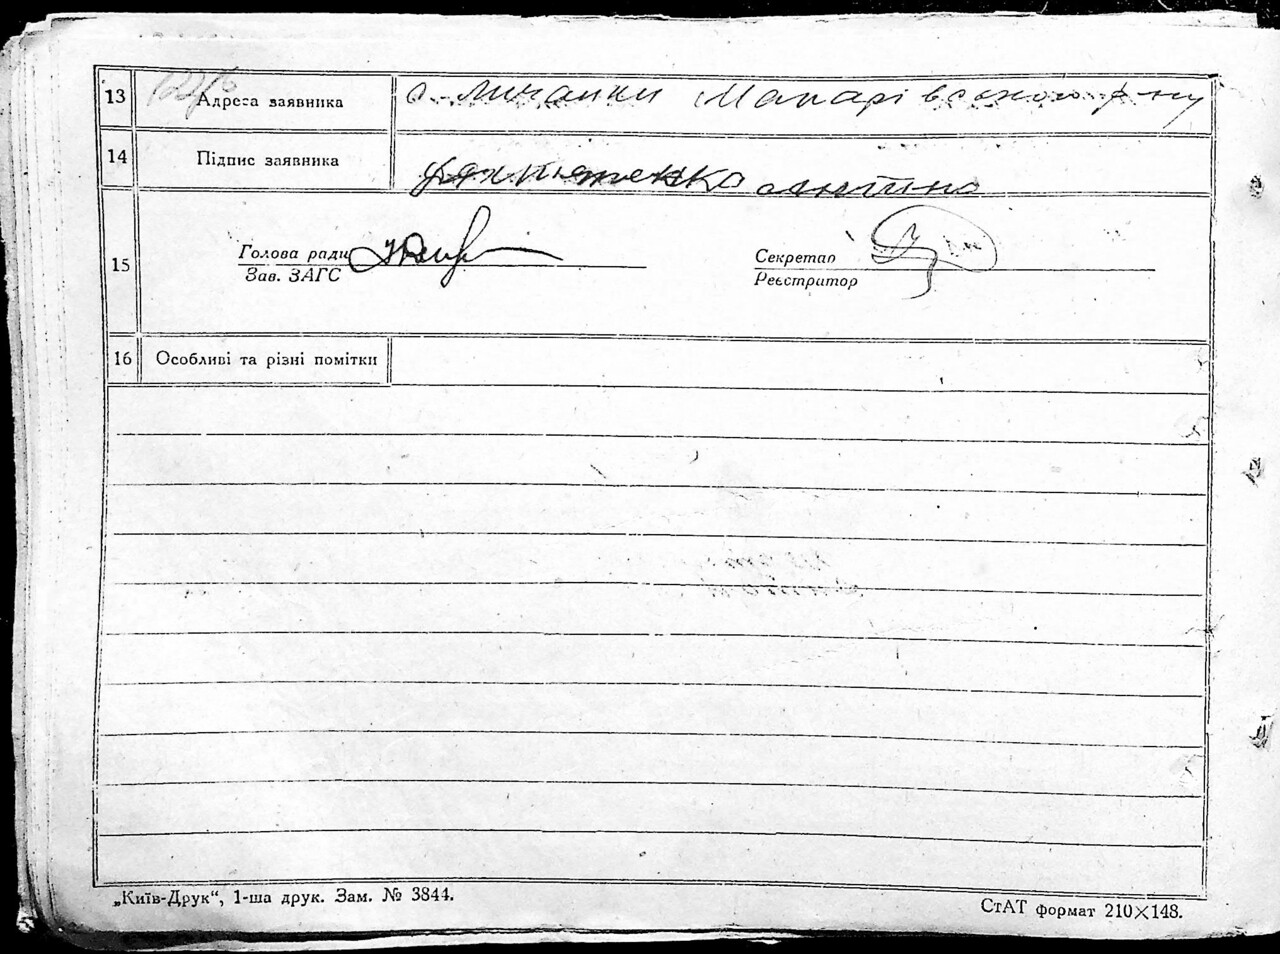 13 Адреса заявника с. Личанки Макарівского р-ну
14 Підпис заявника
15 Голова ради Секретар
Зав. ЗАГС Реєстратор
16 Особливі та різні помітки
„Київ-Друк“, 1-ша друк. Зам. № 3844. СтАТ формат 210×148.